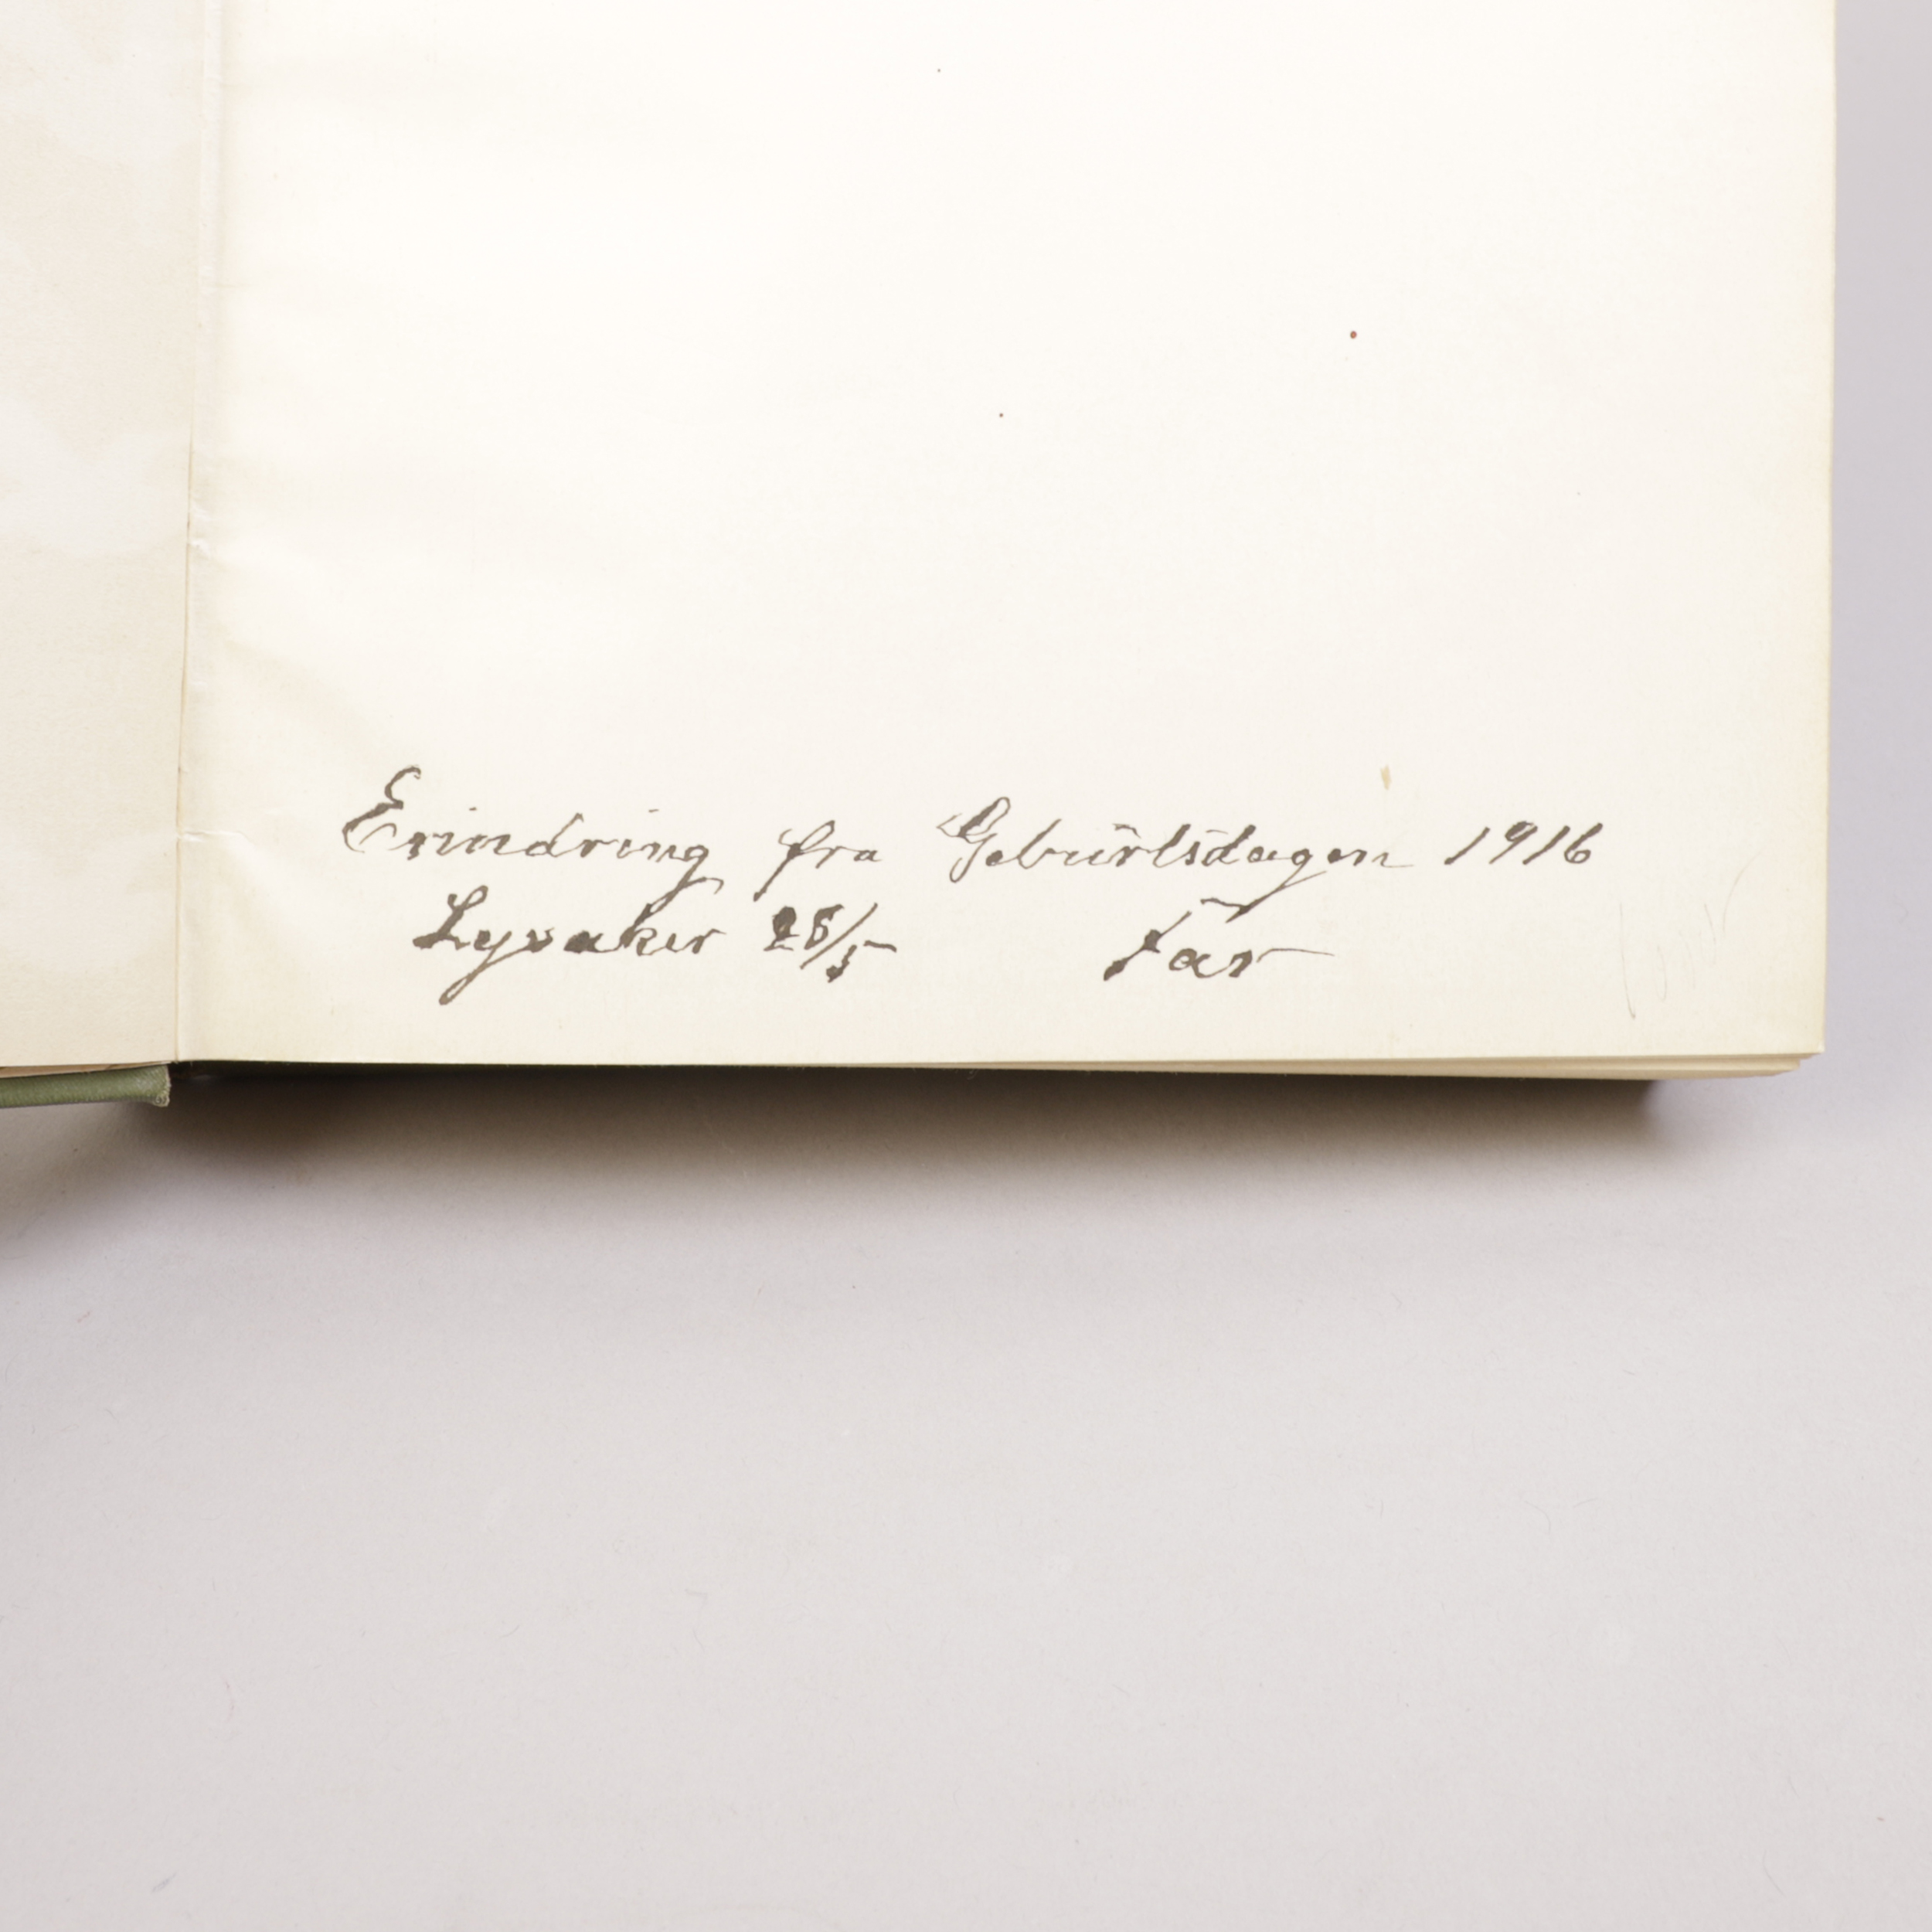 Erindring fra Gebürtsdagen 1916
Lysaker 28/5 Far